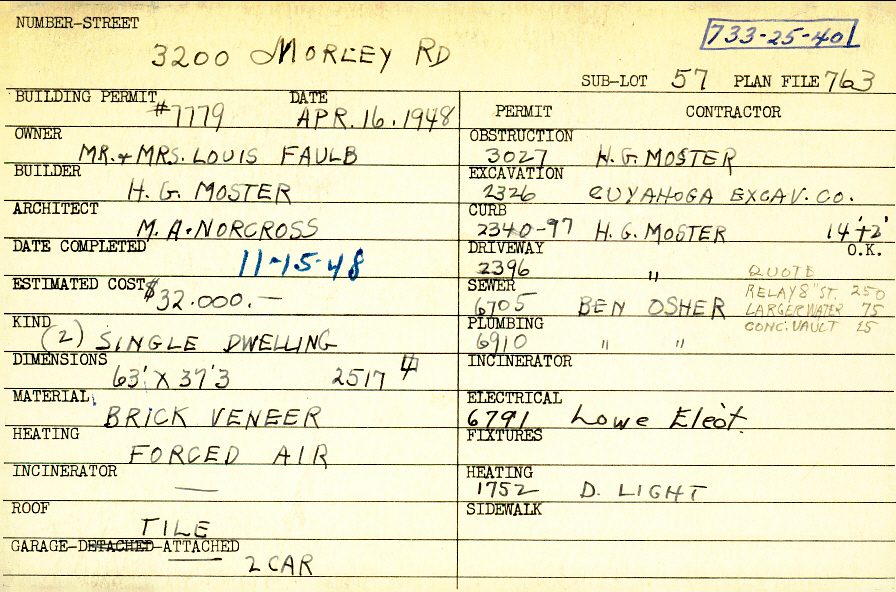 NUMBER-STREET
3200 MORLEY RD
733-25-40
SUB-LOT 57 PLAN FILE 763
BUILDING PERMIT #7779 DATE APR. 16, 1948
OWNER
MR. + MRS. LOUIS FAULB
BUILDER
H. G. MOSTER
ARCHITECT
M. A. NORCROSS
DATE COMPLETED
11-15-48
ESTIMATED COST $32.000.—
KIND
(2) SINGLE DWELLING
DIMENSIONS
63' X 37'3 2517
MATERIAL
BRICK VENEER
HEATING
FORCED AIR
INCINERATOR
—
ROOF
TILE
GARAGE-DETACHED-ATTACHED
2 CAR
PERMIT CONTRACTOR
OBSTRUCTION
3027 H. G. MOSTER
EXCAVATION
2326 CUYAHOGA EXCAV. CO.
CURB
2340-97 H. G. MOSTER 14'+2'
O.K.
DRIVEWAY
2396 " QUOTE
SEWER
6705 BEN OSHER
RELAY 8" ST. 250
LARGER WATER 75
CONC. VAULT 15
PLUMBING
6910 " "
INCINERATOR
ELECTRICAL
6791 Lowe Elect.
FIXTURES
HEATING
1752 D. LIGHT
SIDEWALK